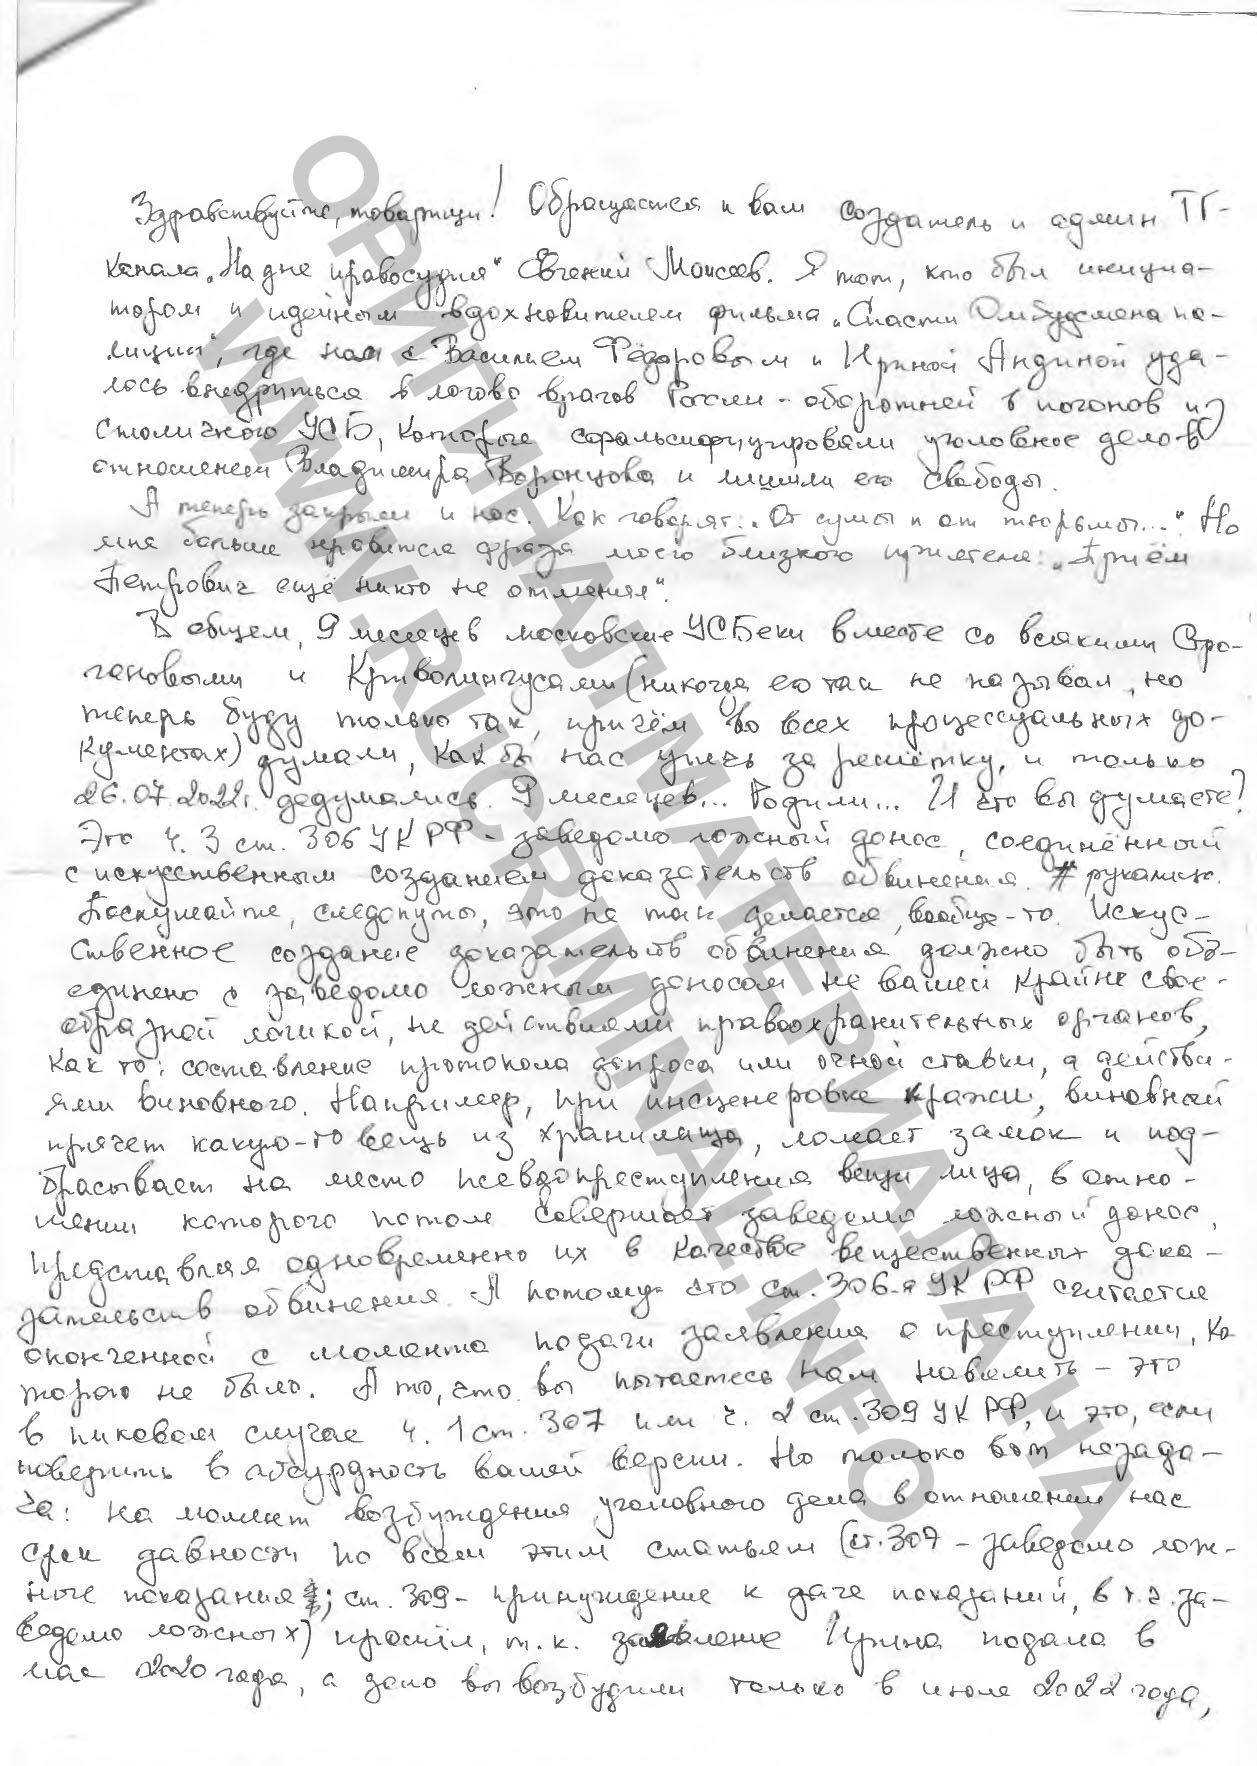 Здравствуйте, товарищи! Обращается к вам создатель и админ ТГ-
канала „На дне правосудия“ Евгений Моисеев. Я тот, кто был иници-
тором и идейным вдохновителем фильма „Спасти Омбудсмена по-
лиции“, где нам с Василием Фёдоровым и Ириной Андиной уда-
лось внедриться в логово врагов России - оборотней в погонов из
столичного УСБ, которые сфальсифицировали уголовное дело в
отношением Владимира Воронцова и лишили его свободы.
А теперь закрыли и нас. Как говорят: „От сумы и от тюрьмы...“. Но
мне больше нравится фраза моего близкого приятеля: „Приём
Петрович ещё никто не отменял“.
В общем, 9 месяцев московские УСБеки вместе со всякими Стро-
гановыми и Криволингусами (никогда его так не называл, но
теперь буду только так, причём во всех процессуальных до-
кументах) думали, как бы нас упечь за решётку, и только
26.07.2022г. додумались. 9 месяцев... Родили... И что вы думаете?
Это ч. 3 ст. 306 УК РФ - заведомо ложный донос, соединённый
с искусственным созданием доказательств обвинения. #рукалицо.
Послушайте, следопуты, это не так делается, вообще-то. Искус-
ственное создание доказательств обвинения должно быть объ-
единено с заведомо ложным доносом не вашей крайне свое-
образной логикой, не действиями правоохранительных органов,
как то: составление протокола допроса или очной ставки, а действи-
ями виновного. Например, при инсценировке кражи, виновный
прячет какую-то вещь из хранилища, ломает замок и под-
брасывает на место псевдопреступления вещи лица, в отно-
шении которого потом совершает заведомо ложный донос,
представляя одновременно их в качестве вещественных дока-
зательств обвинения. А потому что ст. 306-я УК РФ считается
оконченной с момента подачи заявления о преступлении, ко
торого не было. А то, что вы пытаетесь нам навялить - это
в пиковом случае ч. 1 ст. 307 или ч. 2 ст. 309 УК РФ, и это, если
поверить в абсурдность вашей версии. Но только вот незада-
ча: на момент возбуждения уголовного дела в отношении нас
срок давности по всем этим статьям (ст. 307 - заведомо лож-
ные показания; ст. 309 - принуждение к даче показаний, в т.ч. за-
ведомо ложных) прошёл, т.к. заявление Ирина подала в
мае 2020 года, а дело вы возбудили только в июле 2022 года,
ОРИГИНАЛ МАТЕРИАЛА НА
WWW.RUCRIMINAL.INFO